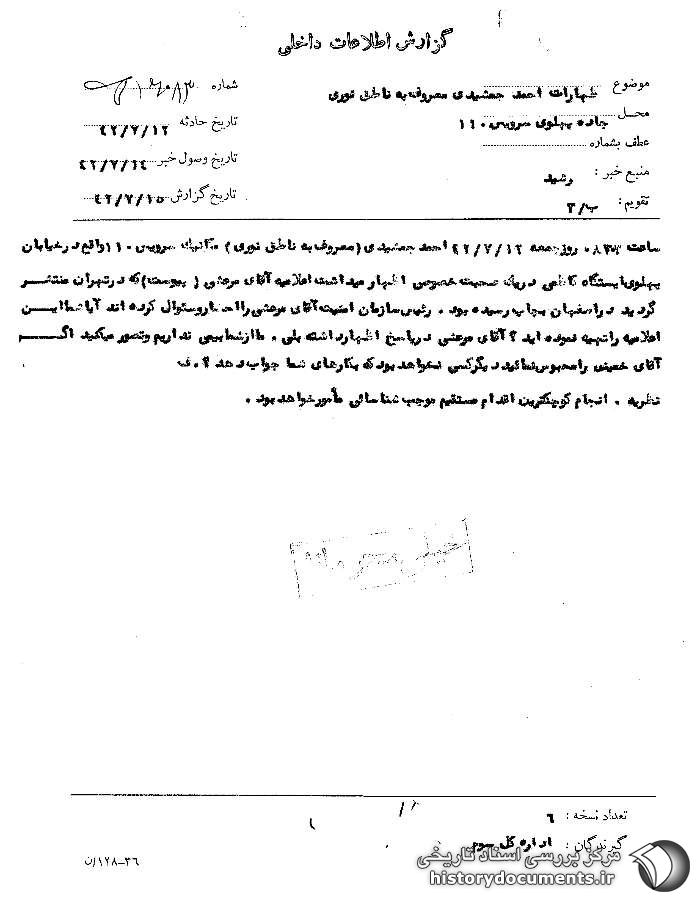 گزارش اطلاعات داخلی
موضوع اظهارات احمد جمشیدی معروف به ناطق نوری
محل جاده پهلوی سرویس ۱۱۰
عطف بشماره
منبع خبر : رشید
تقویم : ب/۳
شماره
تاریخ حادثه ۴۲/۷/۱۲
تاریخ وصول خبر ۴۲/۷/۱٤
تاریخ گزارش ۴۲/۷/۱۵
ساعت ۰۸۳۰ روز جمعه ۴۲/۷/۱۲ احمد جمشیدی (معروف به ناطق نوری) مکانیک سرویس ۱۱۰ واقع در خیابان
پهلوی ایستگاه کاظمی در یک صحبت خصوصی اظهار میداشت اعلامیه آقای مرعشی ( پیوست) که در تهران منتشر
گردید در اصفهان بچاپ رسیده بود . رئیس سازمان امنیت آقای مرعشی را احضار و سئوال کرده اند آیا شما این
اعلامیه را تهیه نموده اید ؟ آقای مرعشی در پاسخ اظهار داشته بلی . ما از شما بیمی نداریم و تصور میکنید اگر
آقای خمینی را محبوس نمائید دیگر کسی نخواهد بود که بکارهای شما جواب دهد ؟ . ف
نظریه . انجام کوچکترین اقدام مستقیم موجب شناسائی مأمور خواهد بود .
خیلی محرمانه
تعداد نسخه : ٦
گیرندگان : اداره کل سوم
۳۶-۱۲۸/ن
مرکز بررسی اسناد تاریخی
historydocuments.ir